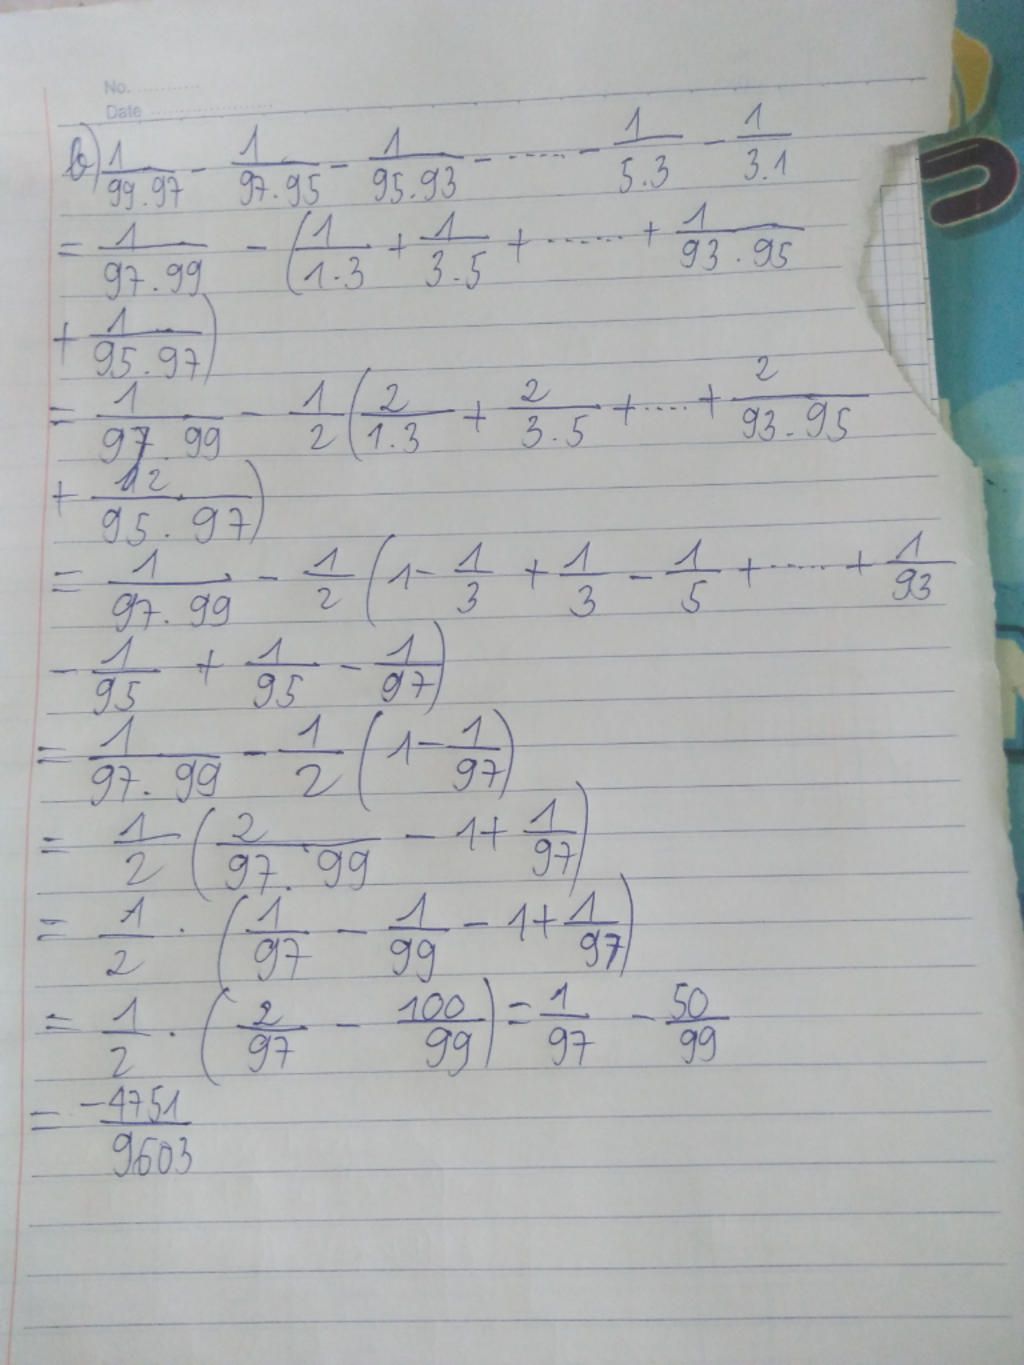 No. ............
Date ........................
b) 1/99.97 - 1/97.95 - 1/95.93 - ...... - 1/5.3 - 1/3.1
= 1/97.99 - (1/1.3 + 1/3.5 + ...... + 1/93.95
+ 1/95.97)
= 1/97.99 - 1/2 (2/1.3 + 2/3.5 + ..... + 2/93.95
+ 2/95.97)
= 1/97.99 - 1/2 (1 - 1/3 + 1/3 - 1/5 + ...... + 1/93
- 1/95 + 1/95 - 1/97)
= 1/97.99 - 1/2 (1 - 1/97)
= 1/2 (2/97.99 - 1 + 1/97)
= 1/2 . (1/97 - 1/99 - 1 + 1/97)
= 1/2 . (2/97 - 100/99) = 1/97 - 50/99
= -4751/9603